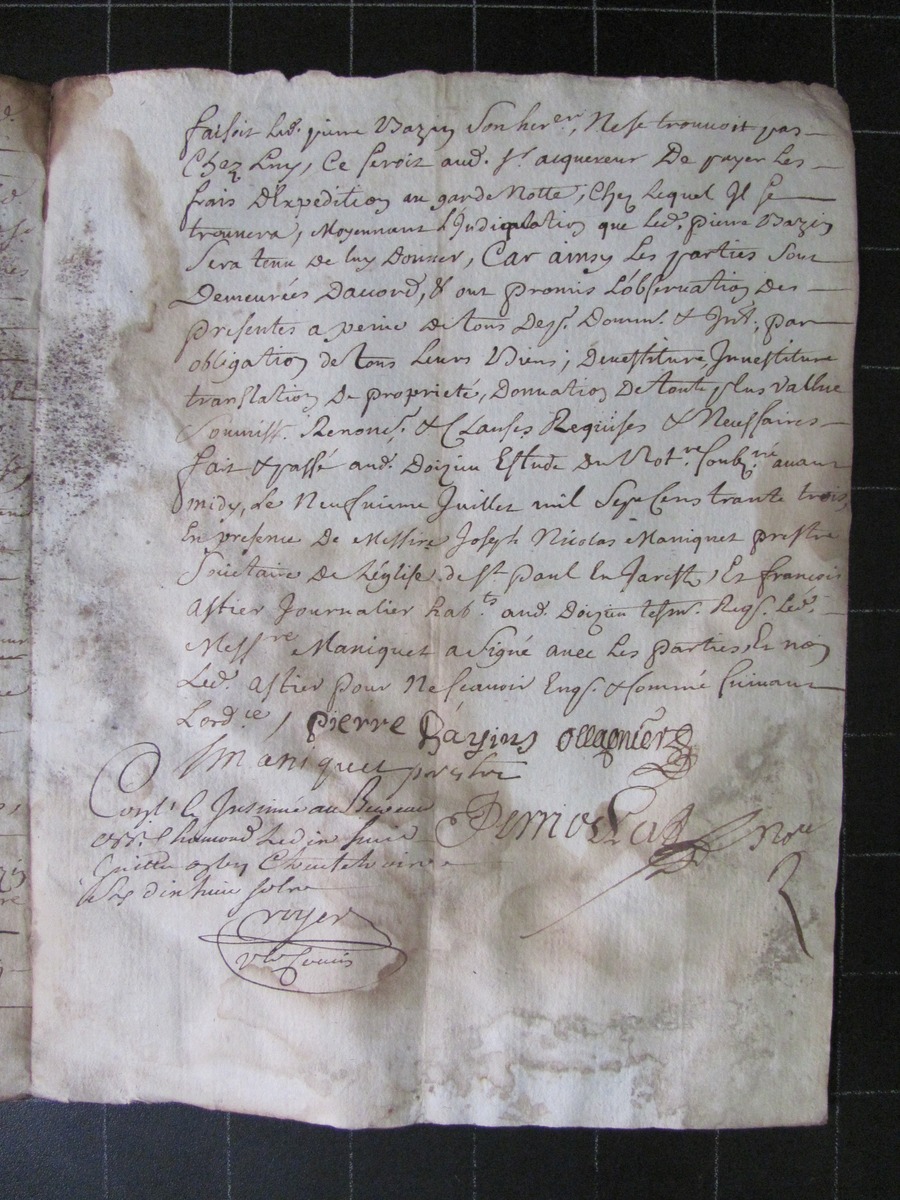 faisoit led. pierre Bazin son her.er, Ne se trouvoit pas
Chez Luy, Ce seroit aud. Sr. acquereur De payer Les
frais dExpedition au garde Notte, Chez Lequel Il se
trouvera, Moyennant L'Indication que Led. pierre Bazin
Sera tenu De luy Donner, Car ainsy Les parties Sont
Demeurées Daccord, & ont promis L'observation Des
presentes a peine de tous Desp. Domm. & Int., par
obligation de tous Leurs Biens, devestiture Investiture
translation De proprieté, Donnation De toute plus vallue
Soumiss. Renonc. & Clauses Requises & Necessaires
fait & passé aud. Doizieu Estude Du Not.re soubz.né avant
midy, Le Neufvieme Juillet mil Sept Cens trante trois,
En presence De Messire Joseph Nicolas Maniquet prestre
Societaire De L'église de St paul En Jarestz, Et françois
Astier Journalier hab.ts aud. Doizieu tesm. Req. Led.
Mess.re Maniquet a Signé avec Les parties, Et non
Led. Astier pour Ne Scavoir Enq. & sommé suivant
Lord.ce /
pierre Bayins ollagnier
Maniquet prestre
Cont. & Insinué au Bureau
de St. Chamond Led. dix huit
Juillet
dix huit sols
royer
Not.re